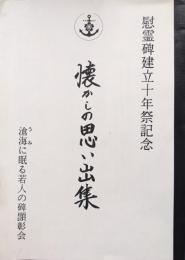 慰霊碑建立十年祭記念
懐かしの思い出集
滄海に眠る若人の碑顕彰会
うみ